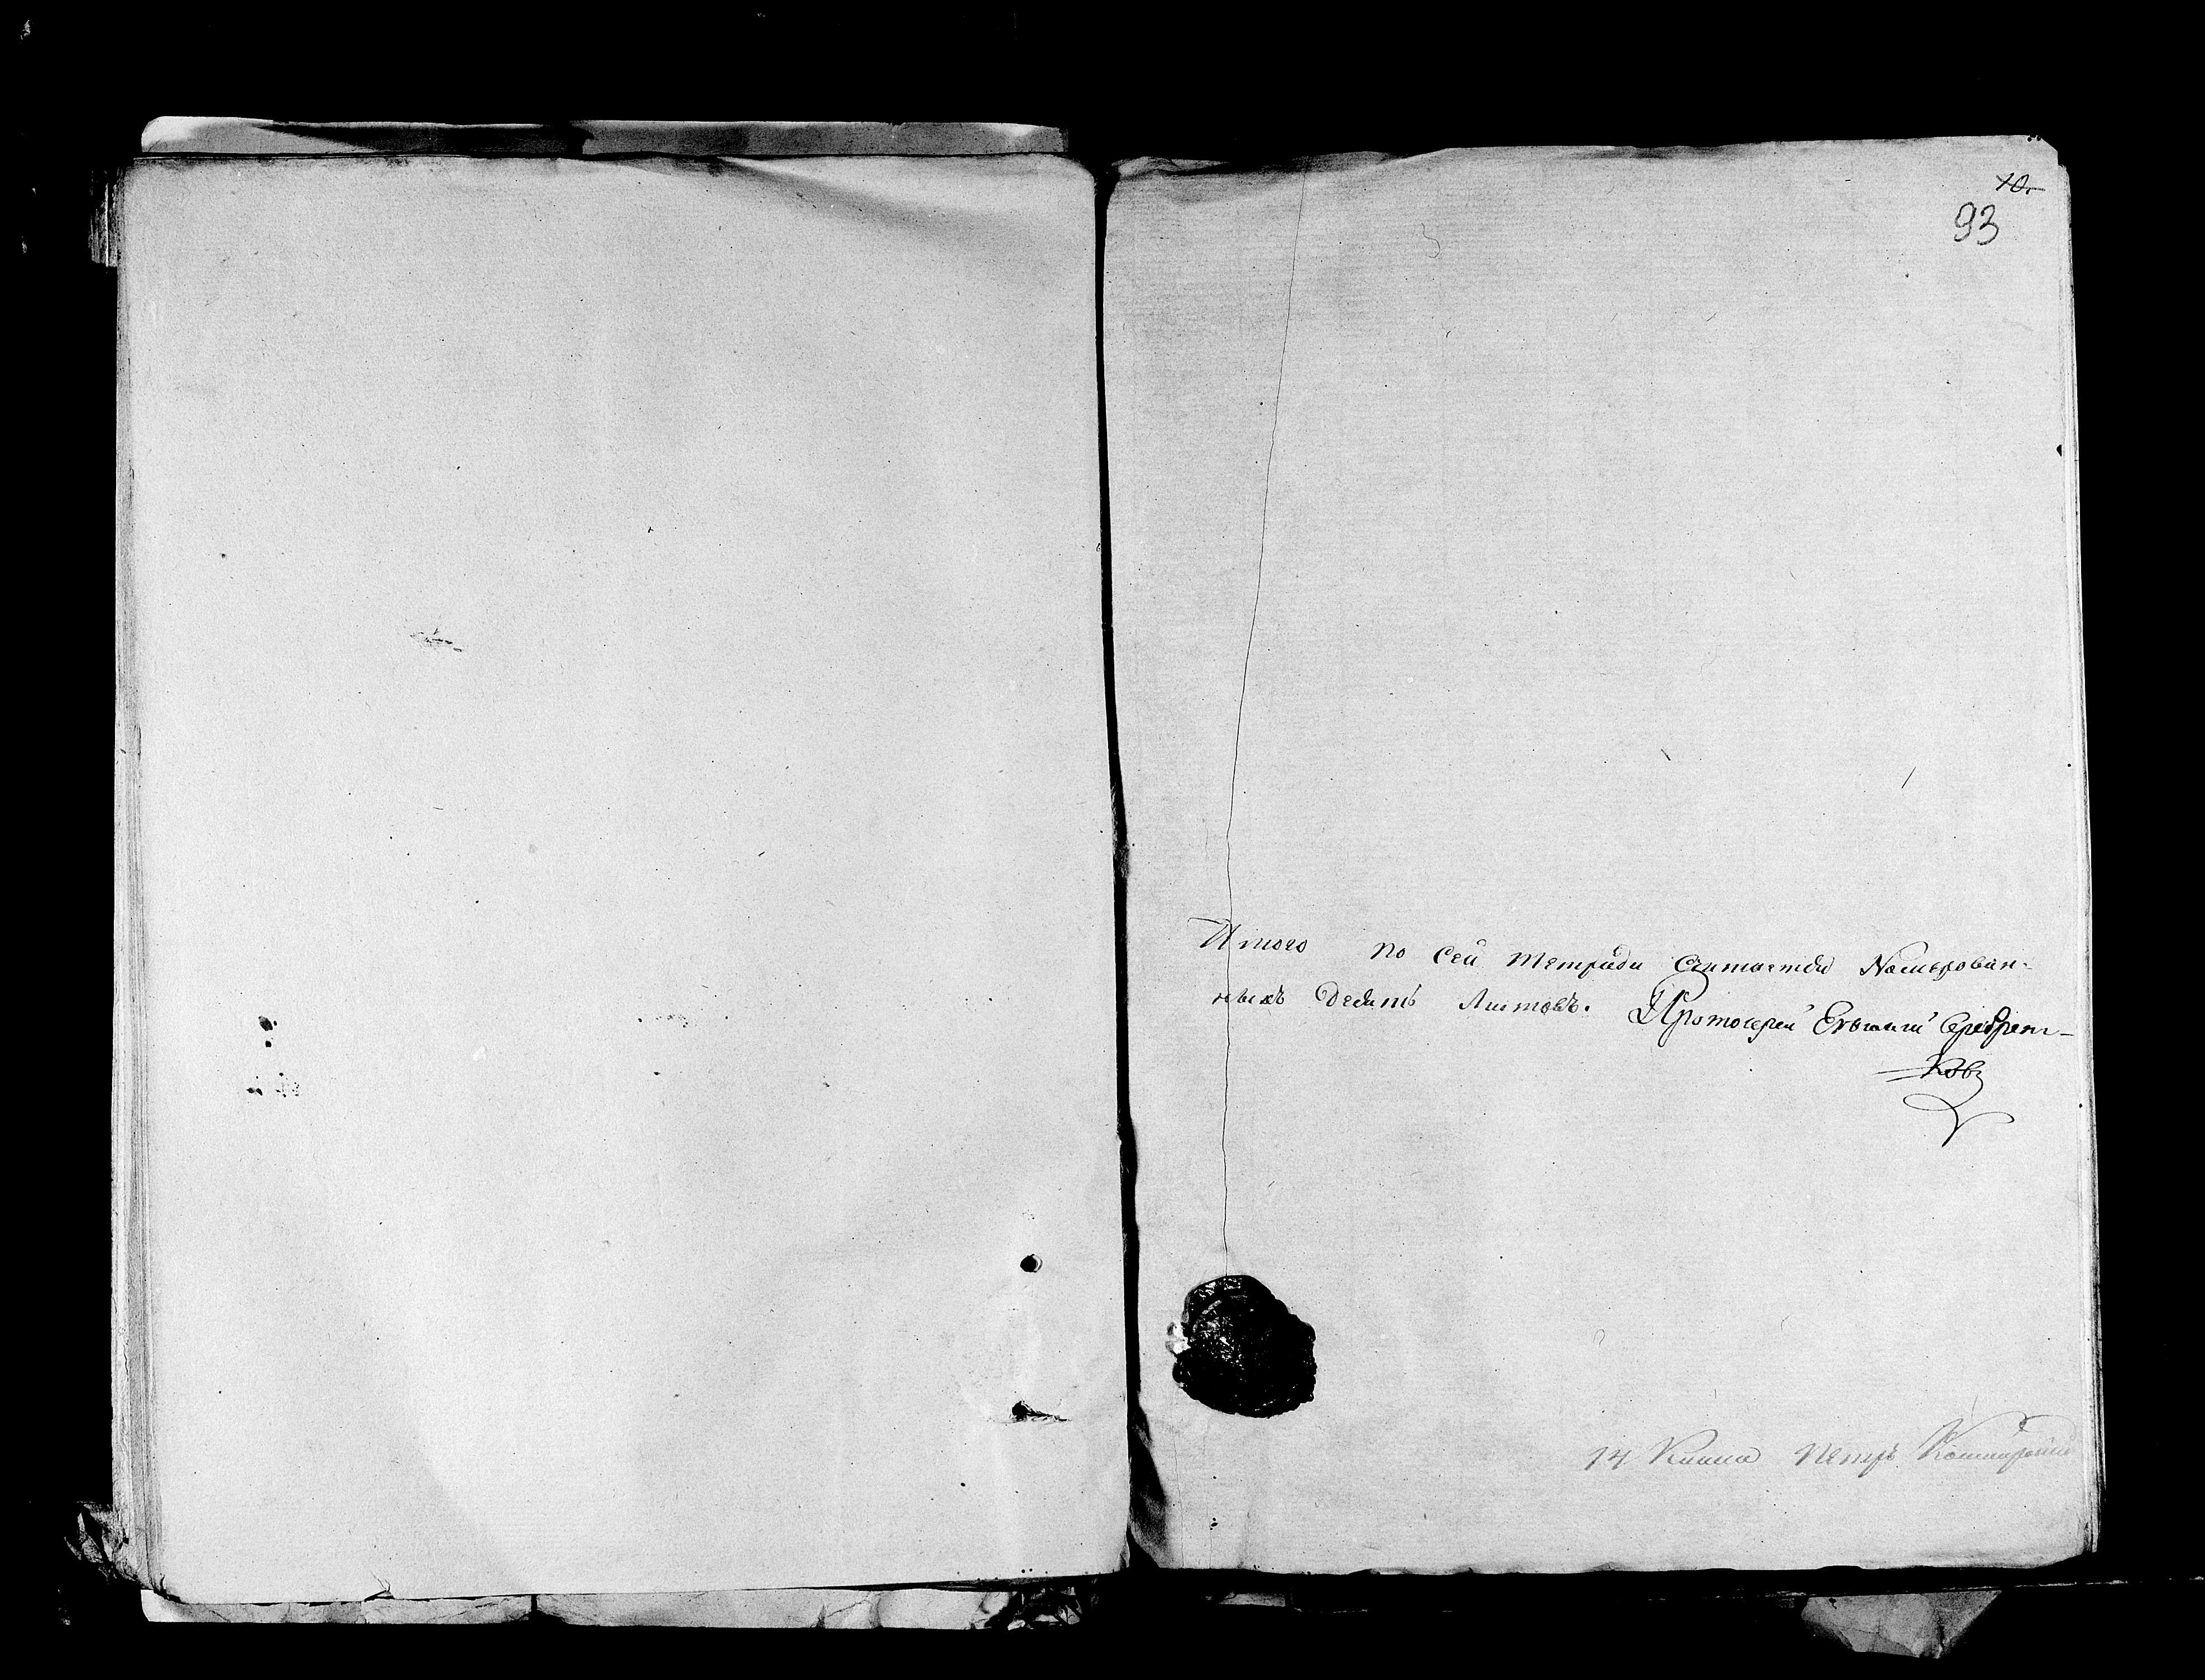 10.
93
Итого по сей тетради считается Номерован-
ныхъ десять листовъ. Протоиерей Евѳимий Серебрени-
ковъ
14 Петръ